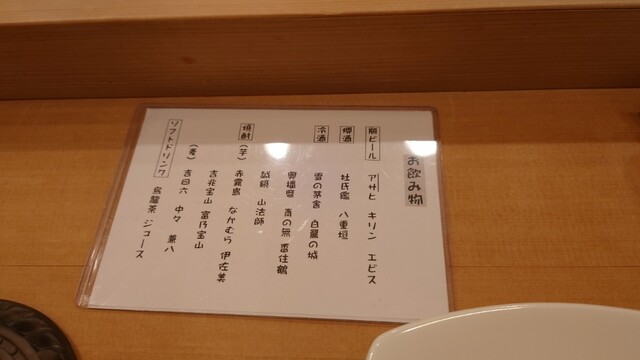 お飲み物
瓶ビール アサヒ キリン エビス
樽酒 杜氏鑑 八重垣
冷酒 雪の茅舎 白鷺の城
奥播磨 香住鶴
誠鏡 山法師
焼酎 (芋) 赤霧島 なかむら 伊佐美
吉兆宝山 富乃宝山
(麦) 吉四六 中々 兼八
ソフトドリンク 烏龍茶 ジュース